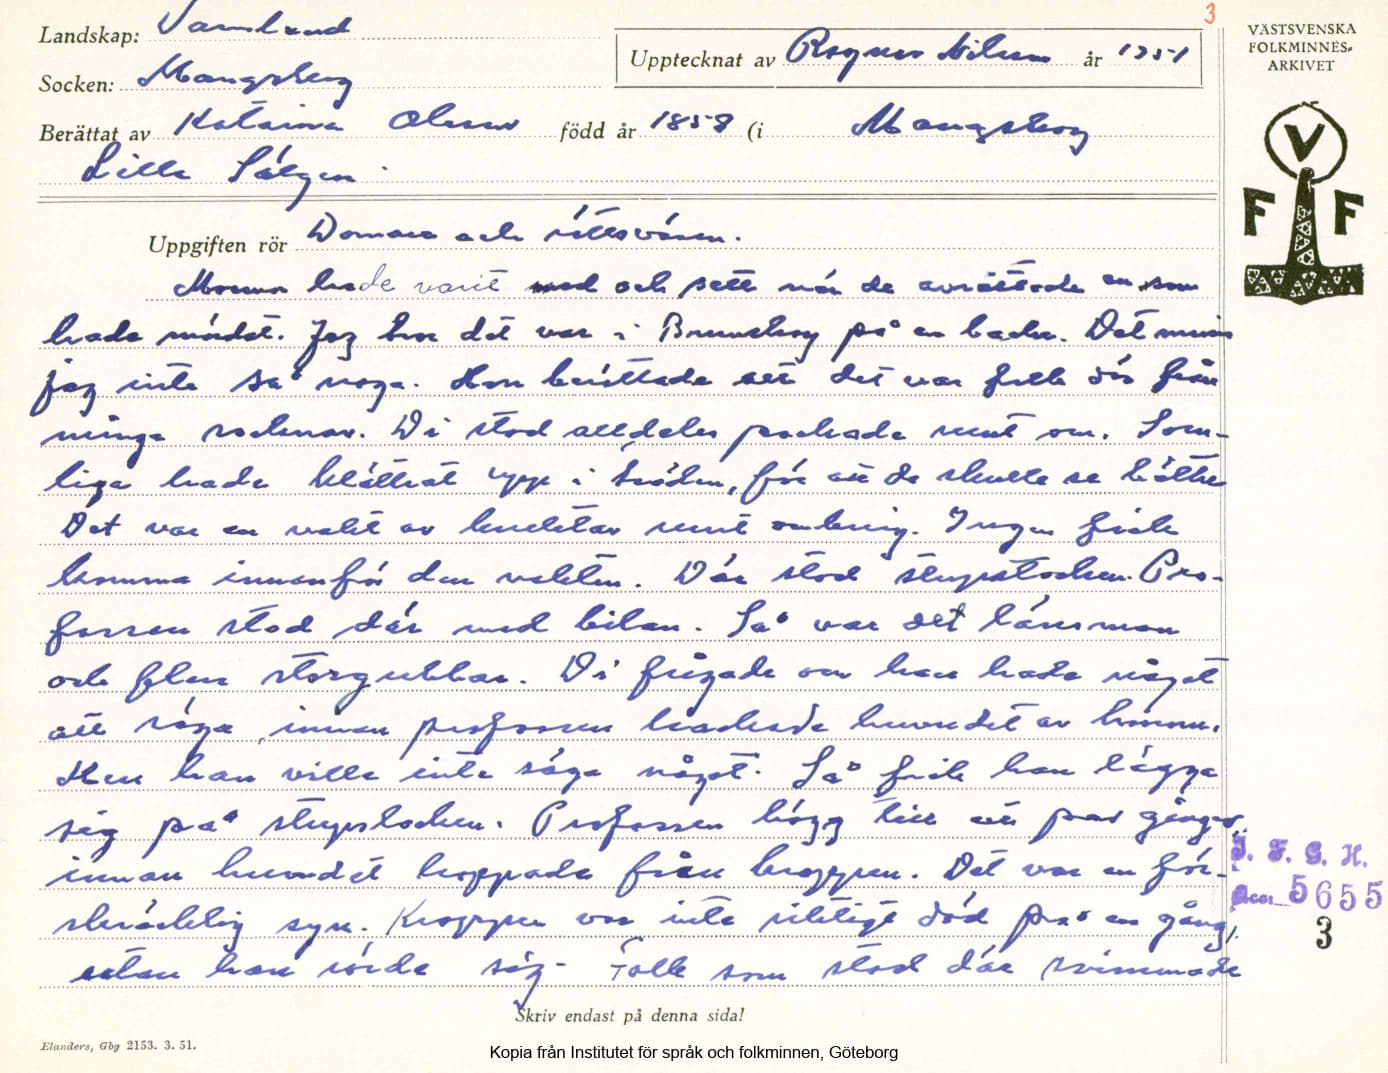 3
Landskap: Värmland
Socken: Mangsberg
Upptecknat av Ragnar Nilsson år 1951
Berättat av Katarina Olsson född år 1858 (i Mangsberg
Lilla Sälgen
VÄSTSVENSKA
FOLKMINNES-
ARKIVET
V
F F
Uppgiften rör Domare och rättsväsen.
Mormor hade varit med och sett när de avrättade en som
hade mördat. Jag tror det var i Brunsberg på en backe. Det minns
jag inte så noga. Hon berättade att det var folk där från
många socknar. Di stod alldeles packade runt om. Som-
liga hade klättrat upp i träden, för att de skulle se bättre
Det var en vakt av knektar runt omkring. Ingen fick
komma innanför den vakten. Där stod stupstocken. Pro-
fossen stod där med bilan. Så var det länsman
och flera storgubbar. Di frågade om han hade något
att säga, innan profossen hackade huvudet av honom.
Men han ville inte säga något. Så fick han lägga
sig på stupstocken. Profossen högg till ett par gånger,
innan huvudet hoppade från kroppen. Det var en för-
skräcklig syn. Kroppen var inte riktigt död på en gång,
utan han rörde sig. Folk som stod där svimmade
I. F. G. H.
Acc. 5655
3
Skriv endast på denna sida!
Elanders, Gbg 2153. 3. 51.
Kopia från Institutet för språk och folkminnen, Göteborg